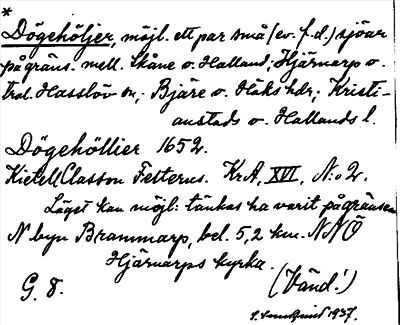 *
Dögehöljer, möjl. ett par små (ev. f.d.) sjöar
på gräns. mell. Skåne o. Halland; Hjärnarp o.
trol. Hasslöv sn; Bjäre o. Höks hdr; Kristi-
anstads o. Hallands l.
Dögehöllier 1652.
Kietell Classon Felterus. KrA, XVI, N:o 2.
Läget kan möjl. tänkas ha varit på gränsen
N byn Brammarp, bel. 5,2 km. NNÖ
Hjärnarps kyrka.
G. 8. (Vänd!)
1937.